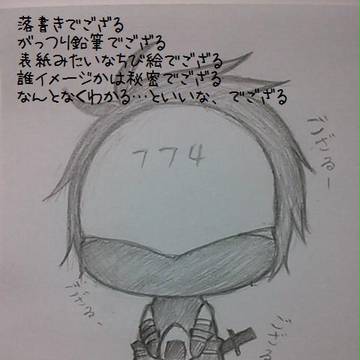 落書きでござる
がっつり鉛筆でござる
表紙みたいなちび絵でござる
誰イメージかは秘密でござる
なんとなくわかる…といいな、でござる
774
ござるー
ござるー
ござるー